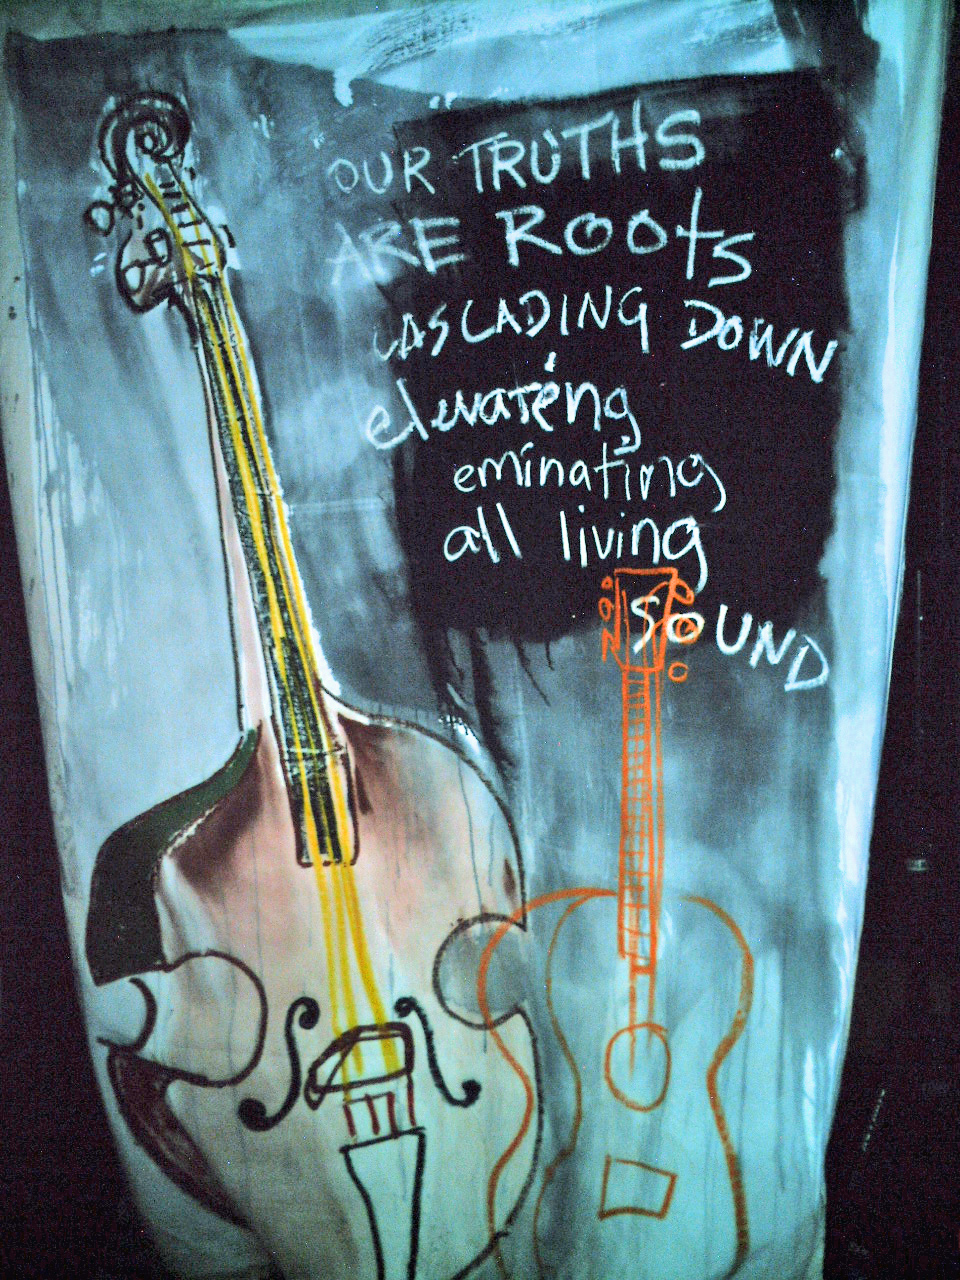 OUR TRUTHS
ARE ROOts
CASCADING DOWN
elevateng
eminating
all living
SOUND